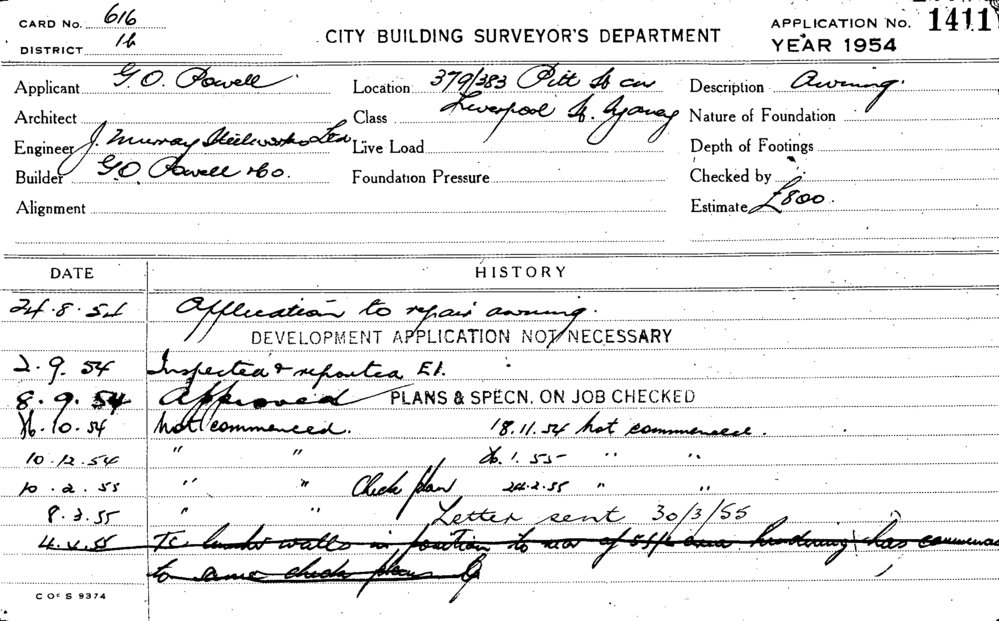 CARD No. 616
DISTRICT 16
CITY BUILDING SURVEYOR'S DEPARTMENT
APPLICATION No. 1411
YEAR 1954
Applicant G.O. Powell
Architect
Engineer J. Murray Steelworks Ltd
Builder G.O. Powell & Co.
Alignment
Location 379/383 Pitt St cnr
Class Liverpool St. Sydney
Live Load
Foundation Pressure
Description Awning.
Nature of Foundation
Depth of Footings
Checked by
Estimate £800.
DATE HISTORY
24.8.54 Application to repair awning.
DEVELOPMENT APPLICATION NOT NECESSARY
2.9.54 Inspected & reported E1.
8.9.54 Approved PLANS & SPECN. ON JOB CHECKED
16.10.54 Not commenced. 18.11.54 not commenced.
10.12.54 " " 1.55 " "
10.2.55 " " Check plan 24.2.55 " "
8.3.55 " " Letter sent 30/3/55
4.V.55 walls in position to rear of has commenced
to same check plans
C OF S 9374